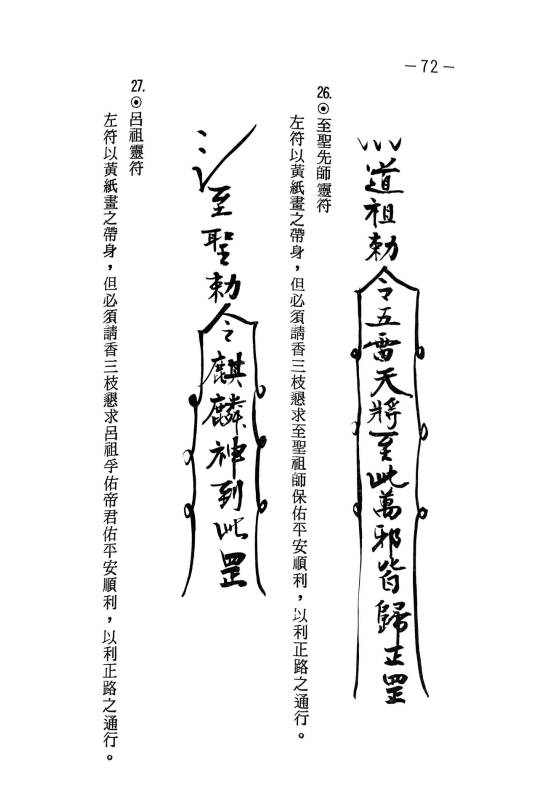 －72－
道祖勅令五雷天將至此萬邪皆歸正罡
26.⊙至聖先師靈符
左符以黃紙畫之帶身，但必須請香三枝懇求至聖祖師保佑平安順利，以利正路之通行。
至聖勅令麒麟神到此罡
27.⊙呂祖靈符
左符以黃紙畫之帶身，但必須請香三枝懇求呂祖孚佑帝君佑平安順利，以利正路之通行。